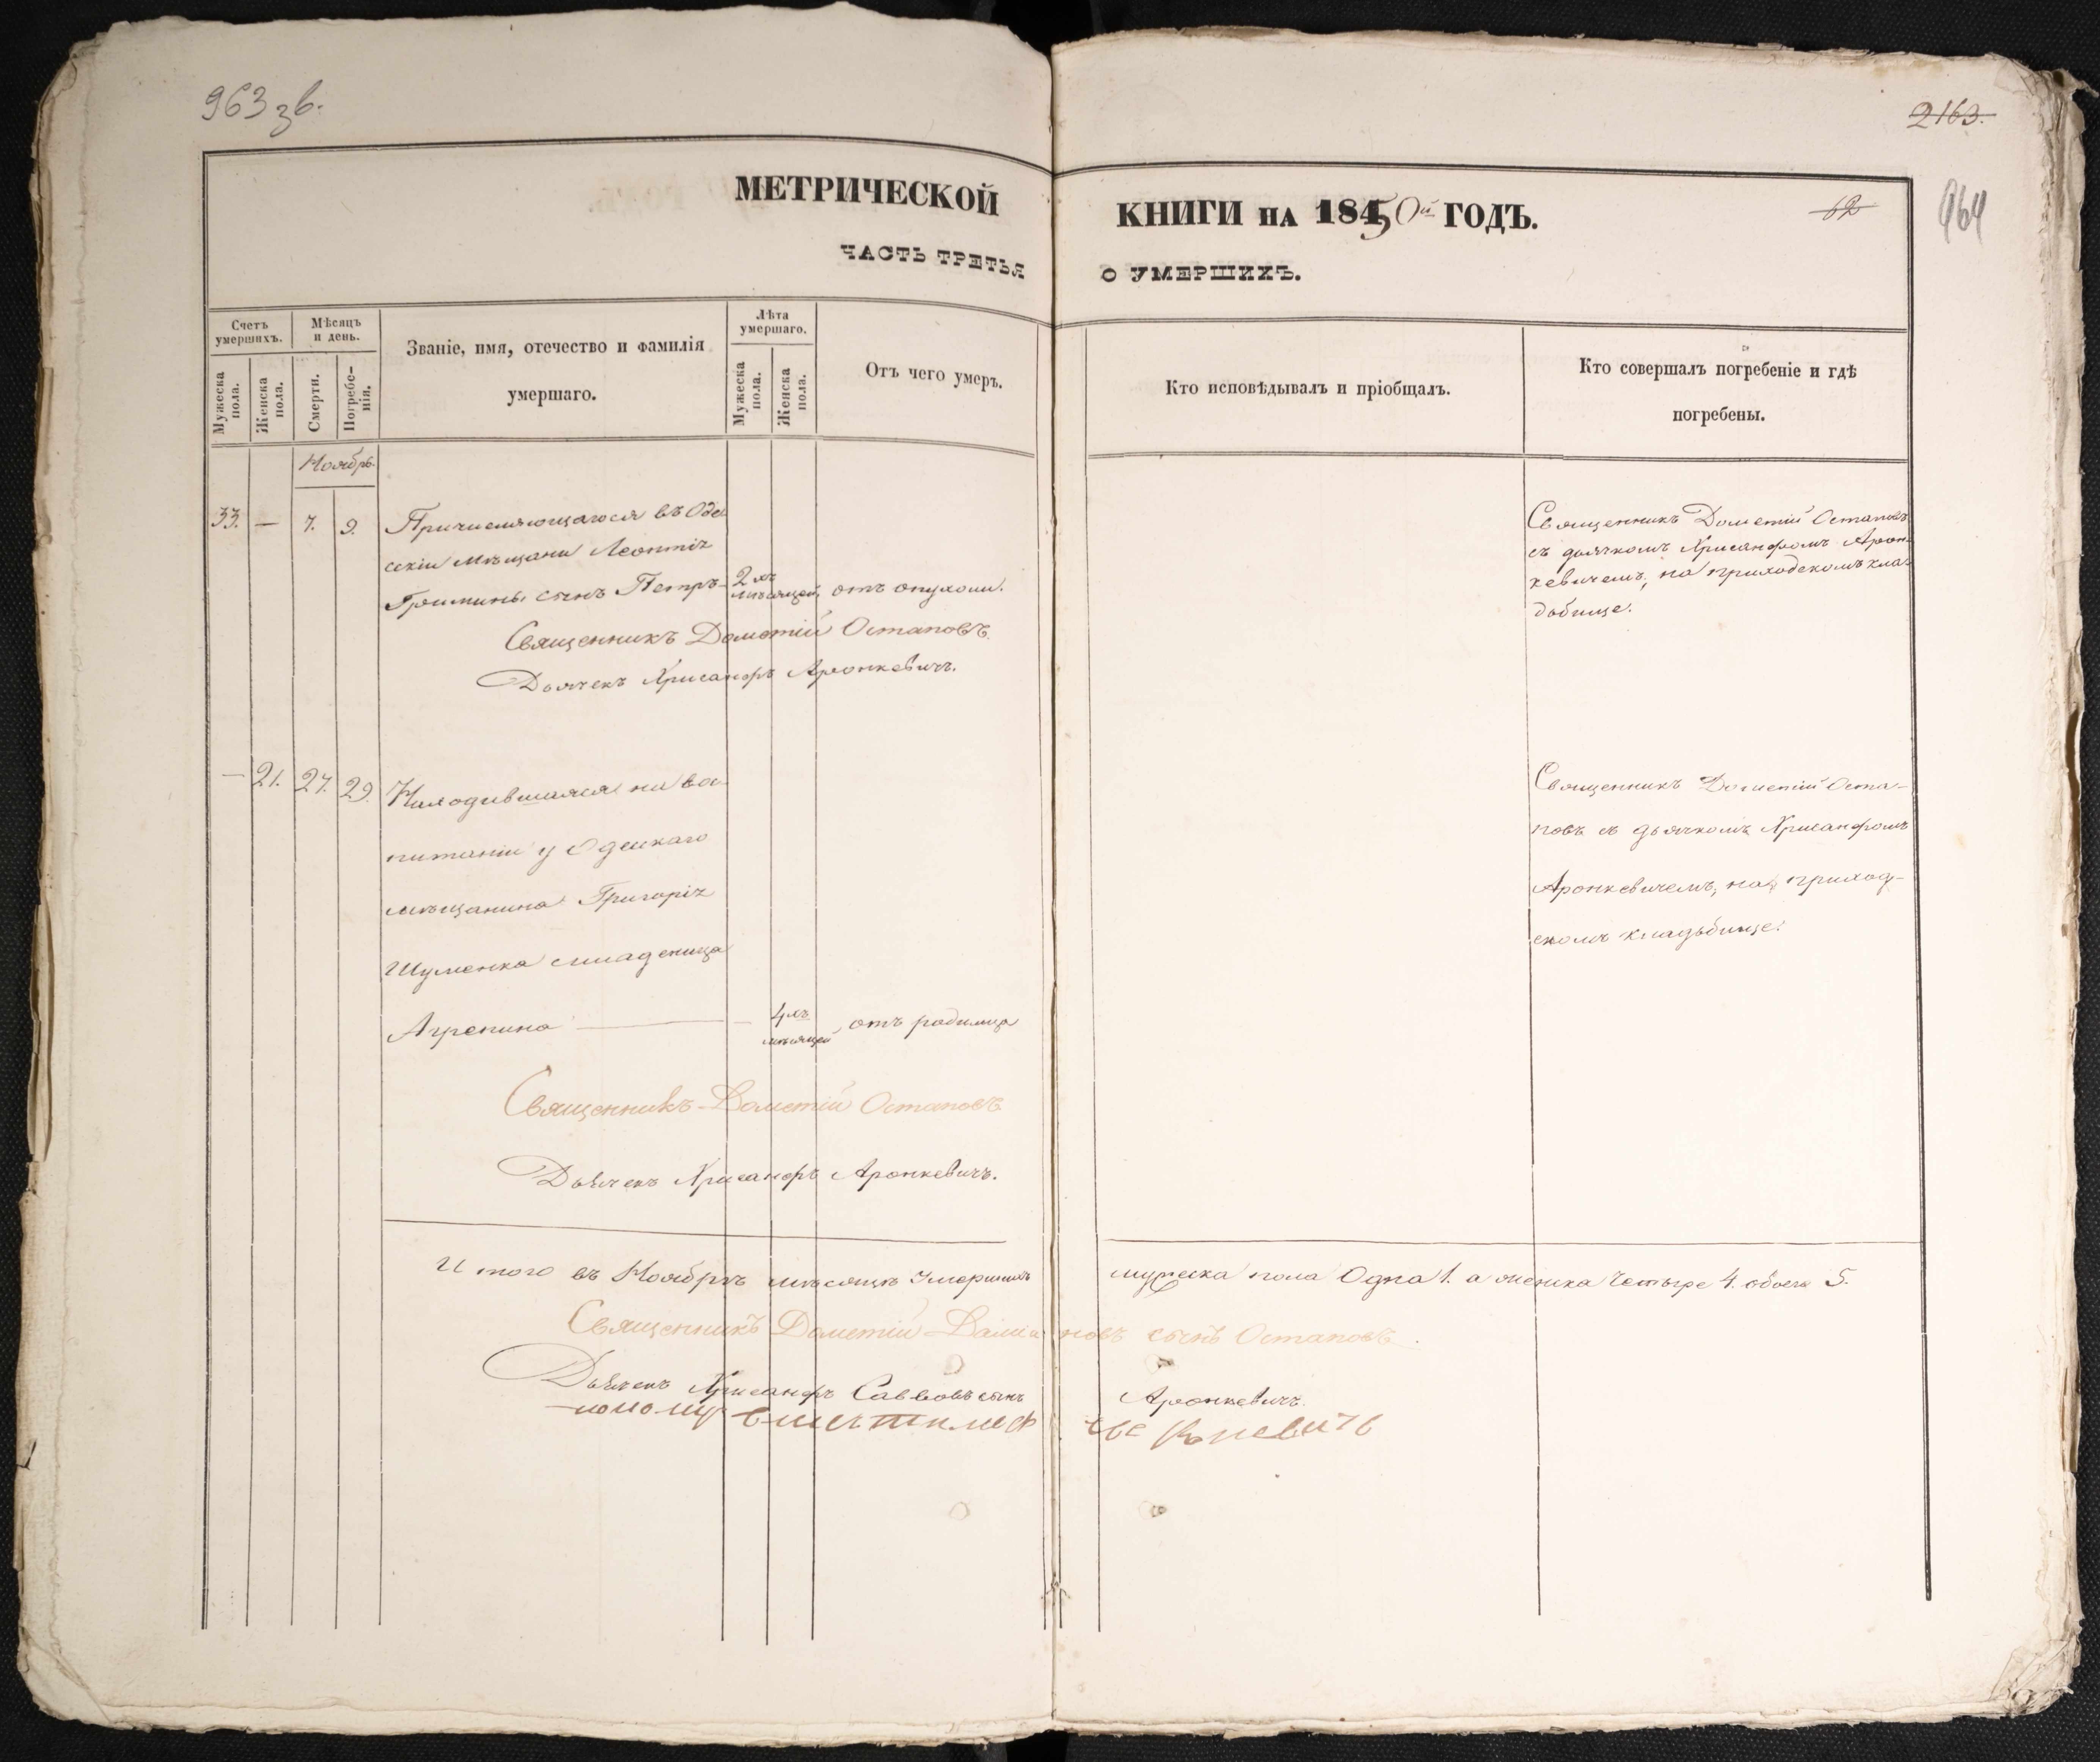 963 зв.
2163.
МЕТРИЧЕСКОЙ
КНИГИ на 1850й ГОДЪ.
62
964
ЧАСТЬ ТРЕТЬЯ
О УМЕРШИХЪ.
Счетъ умершихъ.
Мѣсяцъ и день.
Званіе, имя, отечество и фамилія умершаго.
Лѣта умершаго.
Отъ чего умеръ.
Кто исповѣдывалъ и пріобщалъ.
Кто совершалъ погребеніе и гдѣ погребены.
Мужеска пола.
Женска пола.
Смерти.
Погребенія.
Мужеска пола.
Женска пола.
Ноябрь
33. — 7. 9.
Причисляющагося въ Оде
скіи мѣщани Леонтія
сынъ Петръ — 2хъ мѣсяцей, отъ опухоли.
Священникъ Дометій Остаповъ
съ дьячкомъ Хрисанфомъ Арон-
кевичемъ, на приходскомъ кла-
дбище.
Священникъ Дометій Остаповъ
Дьячекъ Хрисанфъ Аронкевичъ.
— 21. 27. 29.
Находившаяся на во
питаніи у Одескаго
мѣщанина Григорія
Шуменка младеница
Агрепина — — 4хъ мѣсяцей, отъ родимца
Священникъ Дометій Оста-
повъ съ дьячкомъ Хрисанфомъ
Аронкевичемъ, на приход-
скомъ кладьбище.
Священникъ Дометій Остаповъ
Дьячекъ Хрисанфъ Аронкевичъ.
Итого въ Ноябрѣ мѣсяцѣ Умершихъ мужеска пола Одна 1. а женска Четыре 4. обоего 5.
Священникъ Дометій сынъ Остаповъ.
Дьячекъ Хрисанфъ Саввовъ сынъ Аронкевичъ.